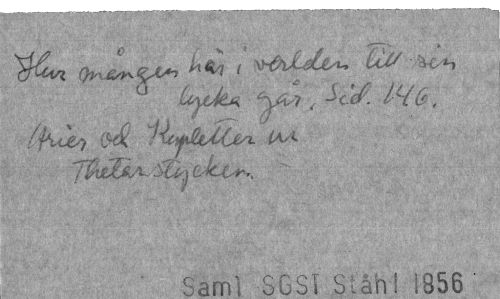 Hur mången här i verlden till sin
lycka går. Sid. 146.
Arier och Kupletter ur
Theterstycken.
Saml SGST Ståhl 1856